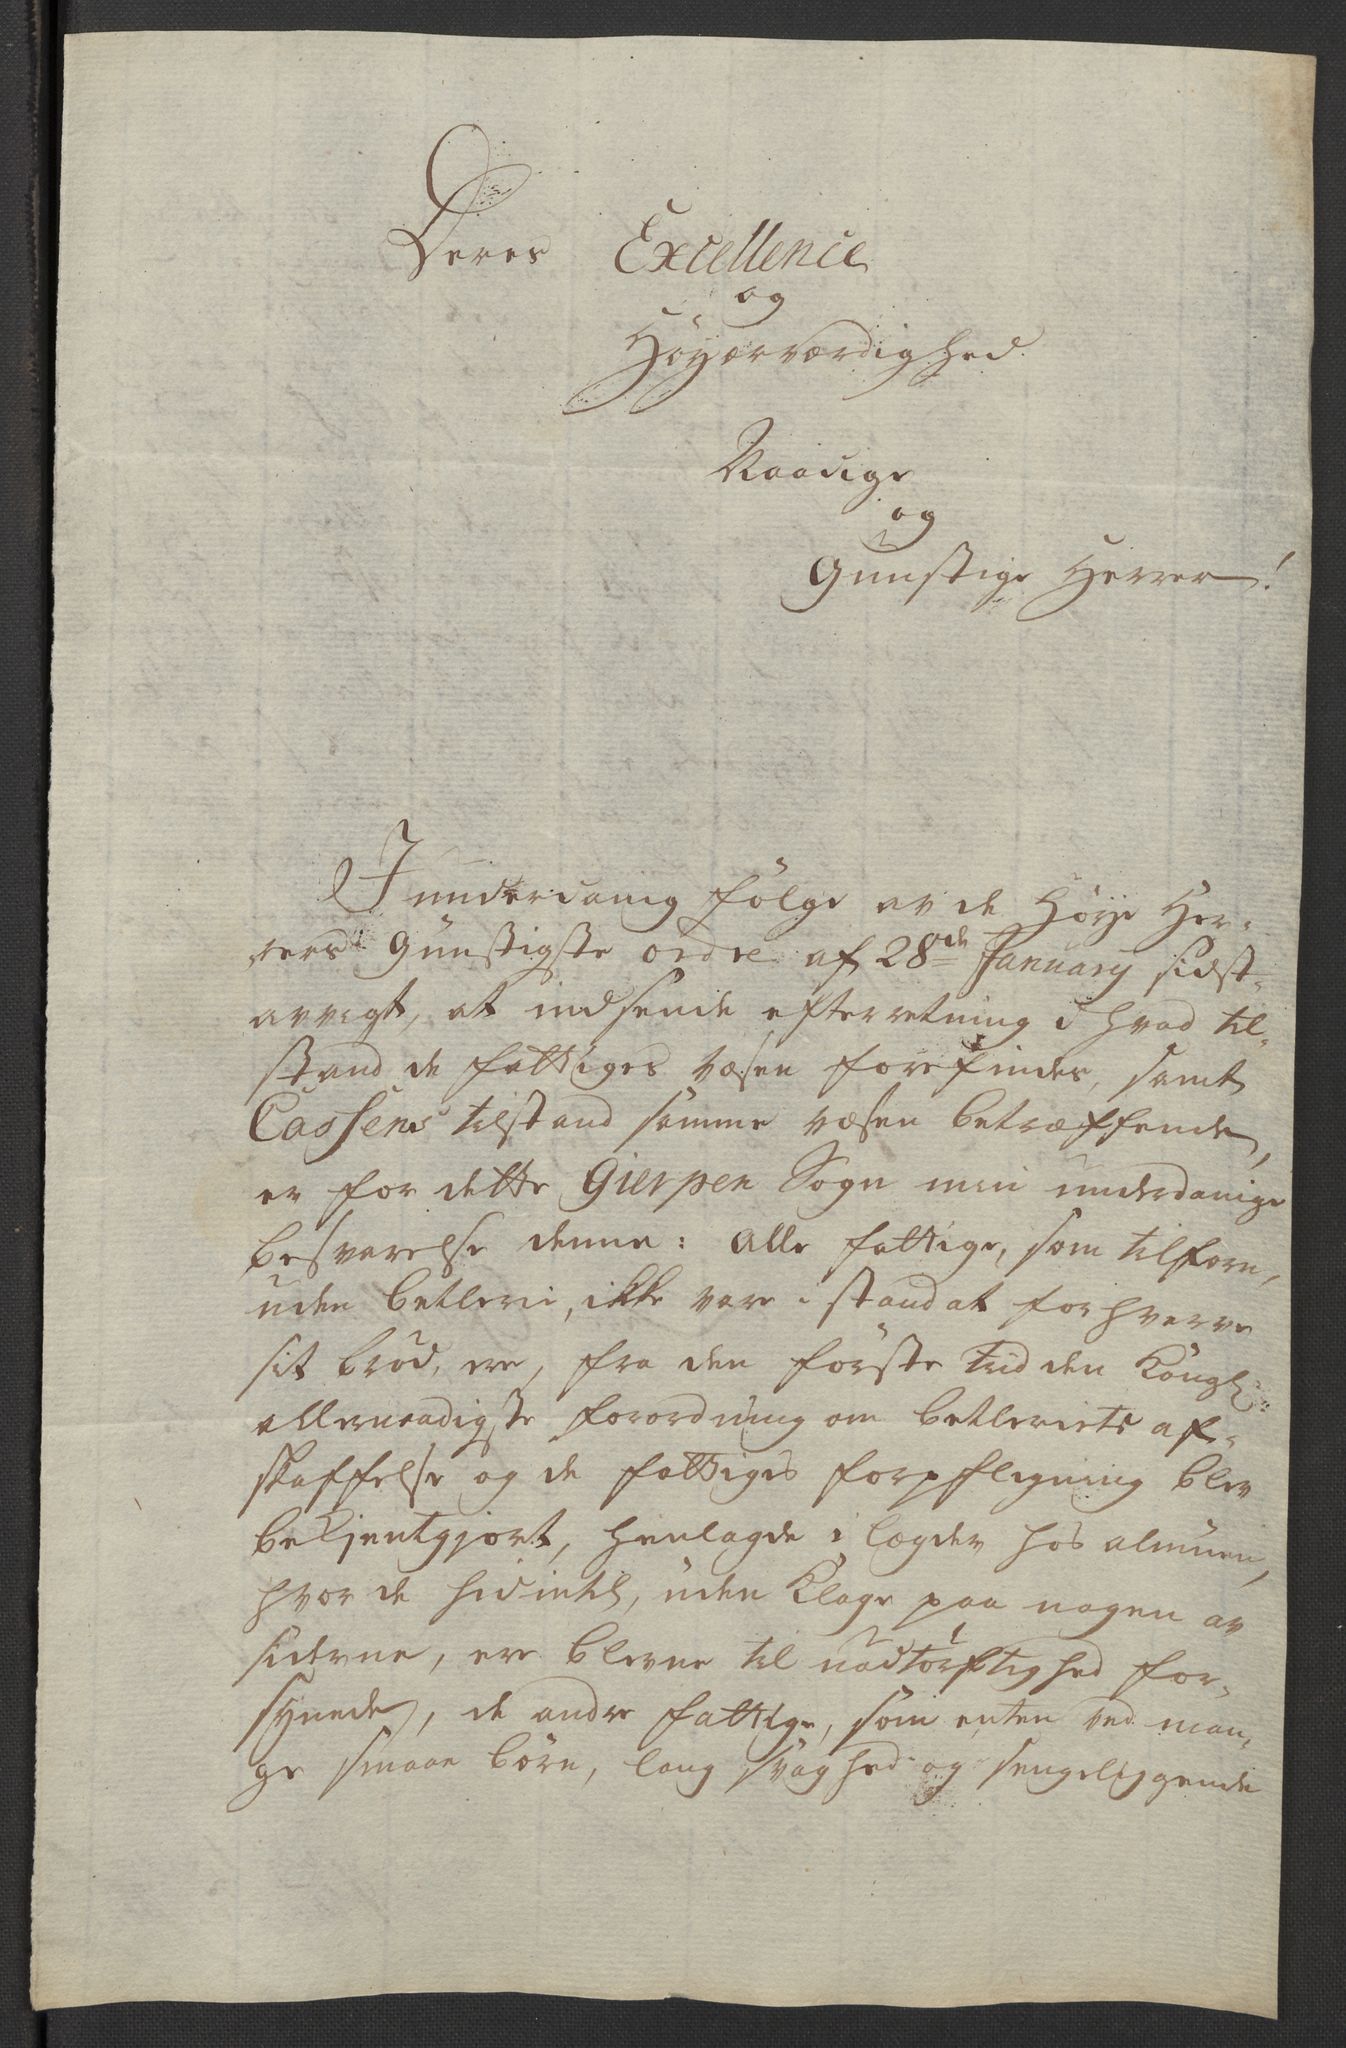 Deres Excellence
og
Höyærværdighed.
Naadige
og
Gunstige Herrer!
I underdanig fölge av de Höye Her-
rers Gunstigste ordre af 28de January sidst-
avvigt, at indsende efterretning i hvad til-
stand de fattiges væsen forefindes, samt
Cassens tilstand samme væsen betræffende,
er for dette Gierpen Sogn min underdanige
besvarelse denne: Alle fattige, som tilforn,
uden betlerie, ikke vare i stand at forhverve
sit bröd, ere, fra den förste tid den Kongl:
allernaadigste forordning om betleriets af-
skaffelse og de fattiges forpflegning blev
bekjentgjort, henlagde i lægder hos almuen,
hvor de hidintil, uden Klage paa nogen av
siderne, ere blevne til nödtörftighed for-
synede, de andre fattige, som enten ved man-
ge smaae börn, lang svaghed og sengeliggende